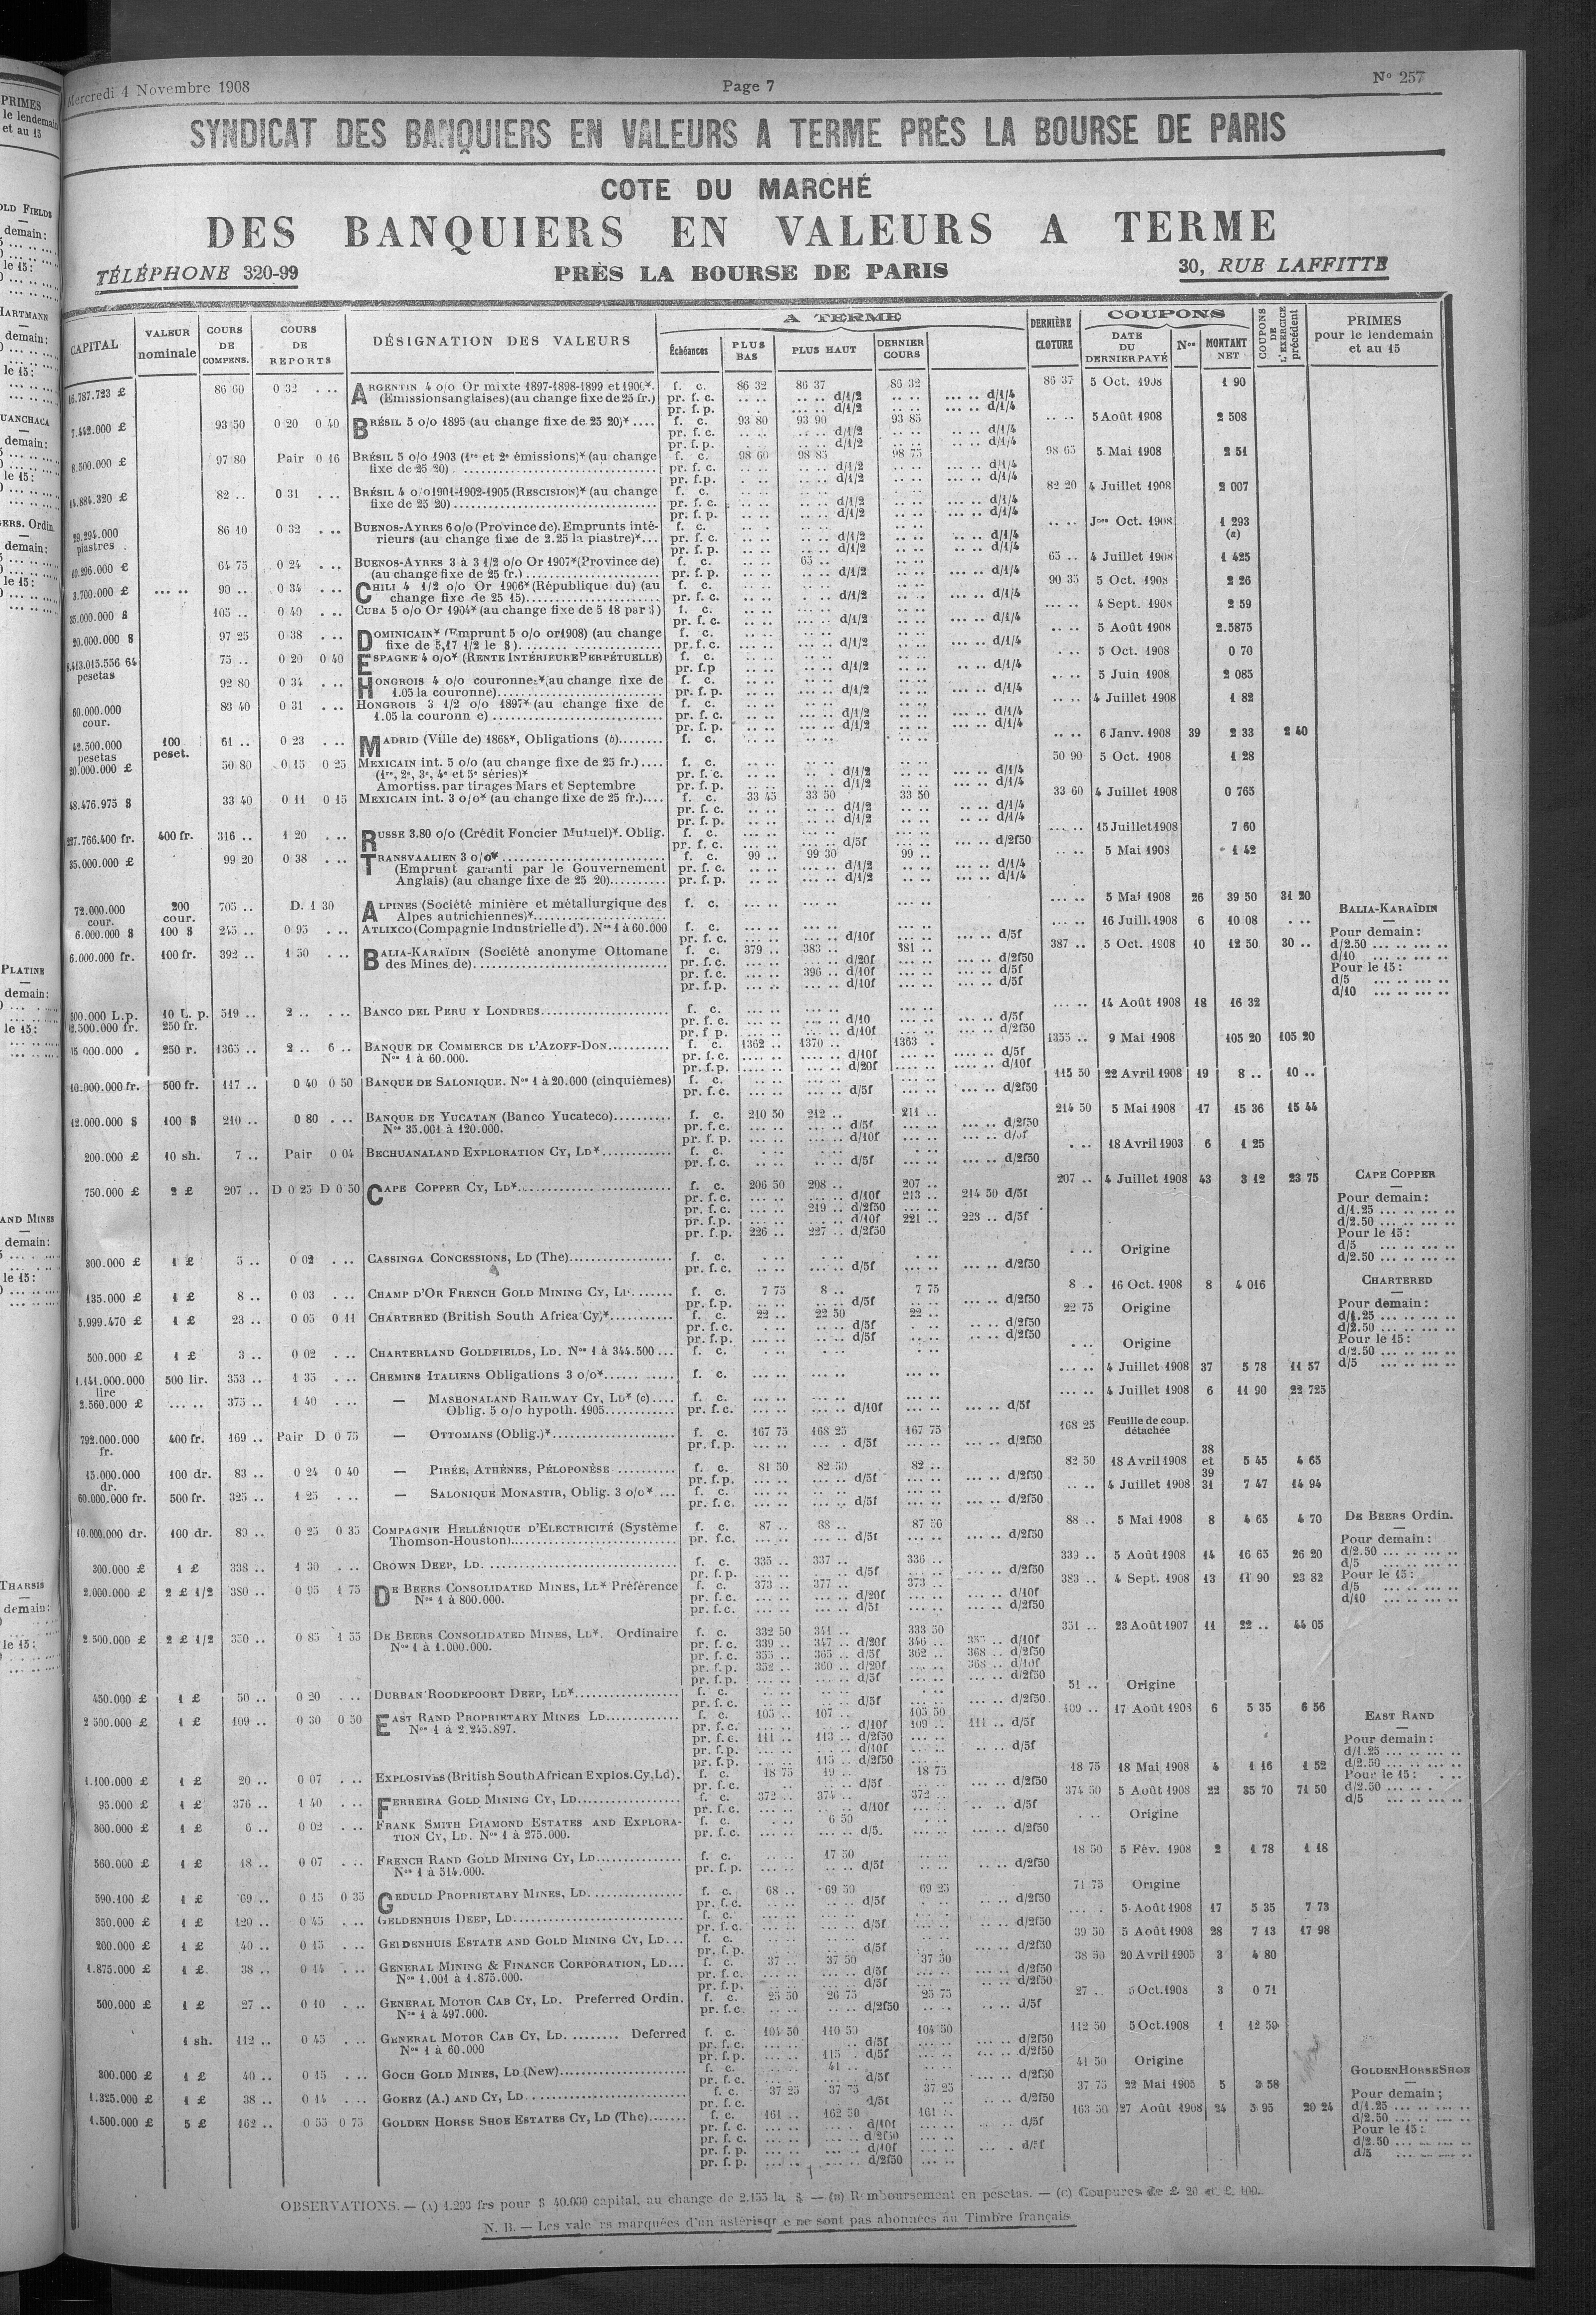 Mercredi 4 Novembre 1908 Page 7 N° 257
SYNDICAT DES BANQUIERS EN VALEURS A TERME PRÈS LA BOURSE DE PARIS
COTE DU MARCHÉ
DES BANQUIERS EN VALEURS A TERME
TÉLÉPHONE 320-99 PRÈS LA BOURSE DE PARIS 30, RUE LAFFITTE
CAPITAL VALEUR nominale COURS DE COMPENS. COURS DE REPORTS DÉSIGNATION DES VALEURS A TERME Échéances PLUS BAS PLUS HAUT DERNIER COURS DERNIÈRE CLOTURE COUPONS DATE DU DERNIER PAYÉ Nos MONTANT NET COUPONS DE L'EXERCICE précédent PRIMES pour le lendemain et au 15
16.787.723 £ 86 60 0 32 . .. ARGENTIN 4 o/o Or mixte 1897-1898-1899 et 1900*. f. c. 86 32 86 37 86 32 86 37 5 Oct. 1908 1 90
(Emissions anglaises) (au change fixe de 25 fr.) pr. f. c. d/1/2 d/1/4
pr. f. p. d/1/2 d/1/4
7.442.000 £ 93 50 0 20 0 40 BRÉSIL 5 o/o 1895 (au change fixe de 25 20)* .... f. c. 93 80 93 90 93 85 .. .. 5 Août 1908 2 508
pr. f. c. d/1/2 d/1/4
pr. f. p. d/1/2 d/1/4
8.500.000 £ 97 80 Pair 0 16 BRÉSIL 5 o/o 1903 (1re et 2e émissions)* (au change f. c. 98 60 98 85 98 75 98 65 5 Mai 1908 2 51
fixe de 25 20) pr. f. c. d/1/2 d/1/4
pr. f. p. d/1/2 d/1/4
14.884.320 £ 82 .. 0 31 . .. BRÉSIL 4 o/o 1901-1902-1905 (RESCISION)* (au change f. c. 82 20 4 Juillet 1908 2 007
fixe de 25 20) pr. f. c. d/1/2 d/1/4
pr. f. p. d/1/2 d/1/4
29.294.000 piastres 86 10 0 32 . .. BUENOS-AYRES 6 o/o (Province de). Emprunts inté- f. c. .. .. Jers Oct. 1908 1 293 (a)
rieurs (au change fixe de 2.25 la piastre)*... pr. f. c. d/1/2 d/1/4
pr. f. p. d/1/2 d/1/4
10.296.000 £ 64 75 0 24 . .. BUENOS-AYRES 3 à 3 1/2 o/o Or 1907* (Province de) f. c. 65 .. 65 .. 4 Juillet 1908 1 425
(au change fixe de 25 fr.) pr. f. p. d/1/2 d/1/4
3.700.000 £ 90 .. 0 34 . .. CHILI 4 1/2 o/o Or 1906* (République du) (au f. c. 90 35 5 Oct. 1908 2 26
change fixe de 25 15) pr. f. c. d/1/2 d/1/4
35.000.000 $ 105 .. 0 40 . .. CUBA 5 o/o Or 1904* (au change fixe de 5 18 par $) f. c. 4 Sept. 1908 2 59
pr. f. c. d/1/2 d/1/4
20.000.000 $ 97 25 0 38 . .. DOMINICAIN* (Emprunt 5 o/o or 1908) (au change f. c. 5 Août 1908 2.5875
fixe de 5,17 1/2 le $) pr. f. c. d/1/2 d/1/4
8.413.015.556 64 pesetas 75 .. 0 20 0 40 ESPAGNE 4 o/o* (RENTE INTÉRIEURE PERPÉTUELLE) f. c. 5 Oct. 1908 0 70
pr. f. p d/1/2 d/1/4
92 80 0 34 . .. HONGROIS 4 o/o couronnes* (au change fixe de f. c. 5 Juin 1908 2 085
1.05 la couronne) pr. f. p. d/1/2 d/1/4
60.000.000 cour. 83 40 0 31 . .. HONGROIS 3 1/2 o/o 1897* (au change fixe de f. c. 4 Juillet 1908 1 82
1.05 la couronn e) pr. f. c. d/1/2 d/1/4
pr. f. p. d/1/2 d/1/4
42.500.000 pesetas 100 peset. 61 .. 0 23 . .. MADRID (Ville de) 1868*, Obligations (b) f. c. 6 Janv. 1908 39 2 33 2 40
20.000.000 £ 50 80 0 15 0 25 MEXICAIN int. 5 o/o (au change fixe de 25 fr.) .... f. c. 50 90 5 Oct. 1908 1 28
(1re, 2e, 3e, 4e et 5e séries)* pr. f. c. d/1/2 d/1/4
Amortiss. par tirages Mars et Septembre pr. f. p. d/1/2 d/1/4
48.476.975 $ 33 40 0 11 0 15 MEXICAIN int. 3 o/o* (au change fixe de 25 fr.).... f. c. 33 45 33 50 33 50 33 60 4 Juillet 1908 0 765
pr. f. c. d/1/2 d/1/4
pr. f. p. d/1/2 d/1/4
227.766.400 fr. 400 fr. 316 .. 1 20 . .. RUSSE 3.80 o/o (Crédit Foncier Mutuel)*. Oblig. f. c. 15 Juillet 1908 7 60
pr. f. c. d/5f d/2f50
35.000.000 £ 99 20 0 38 . .. TRANSVAALIEN 3 o/o* f. c. 99 .. 99 30 99 .. 5 Mai 1908 1 42
(Emprunt garanti par le Gouvernement pr. f. c. d/1/2 d/1/4
Anglais) (au change fixe de 25 20) pr. f. p. d/1/2 d/1/4
72.000.000 cour. 200 cour. 705 .. D. 1 30 ALPINES (Société minière et métallurgique des f. c. 5 Mai 1908 26 39 50 31 20
Alpes autrichiennes)*
6.000.000 $ 100 $ 245 .. 0 95 . .. ATLIXCO (Compagnie Industrielle d'). Nos 1 à 60.000 f. c. 16 Juill. 1908 6 10 08 . ..
pr. f. c. d/10f d/5f
6.000.000 fr. 100 fr. 392 .. 1 50 . .. BALIA-KARAÏDIN (Société anonyme Ottomane f. c. 379 .. 383 .. 381 .. 387 .. 5 Oct. 1908 10 12 50 30 ..
des Mines de) pr. f. c. d/20f d/2f50
pr. f. c. 396 .. d/10f d/5f
pr. f. p. d/10f d/5f
BALIA-KARAÏDIN
Pour demain :
d/2.50
d/10
Pour le 15 :
d/5
d/10
500.000 L.p. 12.500.000 fr. 10 L. p. 250 fr. 519 .. 2 .. . .. BANCO DEL PERU Y LONDRES f. c. 14 Août 1908 18 16 32
pr. f. c. d/10 d/5f
pr. f p. d/10f d/2f50
15 000.000 . 250 r. 1365 .. 2 .. 6 .. BANQUE DE COMMERCE DE L'AZOFF-DON f. c. 1362 .. 1370 .. 1363 . 1355 .. 9 Mai 1908 105 20 105 20
Nos 1 à 60.000. pr. f. c. d/10f d/5f
pr. f. p. d/20f d/10f
10.000.000 fr. 500 fr. 117 .. 0 40 0 50 BANQUE DE SALONIQUE. Nos 1 à 20.000 (cinquièmes) f. c. 115 50 22 Avril 1908 19 8 .. 10 ..
pr. f. c. d/5f d/2f50
12.000.000 $ 100 $ 210 .. 0 80 . .. BANQUE DE YUCATAN (Banco Yucateco) f. c. 210 50 212 .. 211 .. 214 50 5 Mai 1908 17 15 36 15 44
Nos 35.001 à 120.000. pr. f. c. d/5f d/2f50
pr. f. p. d/10f d/5f
200.000 £ 10 sh. 7 .. Pair 0 04 BECHUANALAND EXPLORATION CY, LD* f. c. 18 Avril 1903 6 1 25
pr. f. c. d/5f d/2f50
750.000 £ 2 £ 207 .. D 0 25 D 0 50 CAPE COPPER CY, LD* f. c. 206 50 208 .. 207 .. 207 .. 4 Juillet 1908 43 3 12 23 75
pr. f. c. d/10f 213 .. 214 50 d/5f
pr. f. c. 219 .. d/2f50
pr. f. p. d/10f 221 .. 223 .. d/5f
pr. f. p. 226 .. 227 .. d/2f50
CAPE COPPER
Pour demain :
d/1.25
d/2.50
Pour le 15 :
d/5
d/2.50
300.000 £ 1 £ 5 .. 0 02 . .. CASSINGA CONCESSIONS, LD (The) f. c. Origine
pr. f. c. d/5f d/2f50
135.000 £ 1 £ 8 .. 0 03 . .. CHAMP D'OR FRENCH GOLD MINING CY, LD f. c. 7 75 8 .. 7 75 8 . 16 Oct. 1908 8 4 016
pr. f. p. d/5f d/2f50
5.999.470 £ 1 £ 23 .. 0 05 0 11 CHARTERED (British South Africa Cy)* f. c. 22 .. 22 50 22 .. 22 75 Origine
pr. f. c. d/5f d/2f50
pr. f. p. d/5f d/2f50
CHARTERED
Pour demain :
d/1.25
d/2.50
Pour le 15 :
d/2.50
d/5
500.000 £ 1 £ 3 .. 0 02 . .. CHARTERLAND GOLDFIELDS, LD. Nos 1 à 344.500 ... f. c. Origine
1.141.000.000 lire 500 lir. 353 .. 1 35 . .. CHEMINS ITALIENS Obligations 3 o/o* f. c. 4 Juillet 1908 37 5 78 11 57
2.560.000 £ 375 .. 1 40 . .. — MASHONALAND RAILWAY CY, LD* (c) .... f. c. 4 Juillet 1908 6 11 90 22 725
Oblig. 5 o/o hypoth. 1905 pr. f. c. d/10f d/5f
792.000.000 fr. 400 fr. 169 .. Pair D 0 75 — OTTOMANS (Oblig.)* f. c. 167 75 168 25 167 75 168 25 Feuille de coup. détachée
pr. f. p. d/5f d/2f50
15.000.000 dr. 100 dr. 83 .. 0 24 0 40 — PIRÉE, ATHÈNES, PÉLOPONÈSE f. c. 81 50 82 50 82 .. 82 50 18 Avril 1908 38 et 39 5 45 4 65
pr. f. p. d/5f d/2f50
60.000.000 fr. 500 fr. 325 .. 1 25 . .. — SALONIQUE MONASTIR, Oblig. 3 o/o* ... f. c. 4 Juillet 1908 31 7 47 14 94
pr. f. c. d/5f d/2f50
10.000.000 dr. 100 dr. 89 .. 0 25 0 35 COMPAGNIE HELLÉNIQUE D'ELECTRICITÉ (Système f. c. 87 .. 88 .. 88 .. 5 Mai 1908 8 4 65 4 70
Thomson-Houston) pr. f.c. d/5f d/2f50
300.000 £ 1 £ 338 .. 1 30 . .. CROWN DEEP, LD. f. c. 335 .. 337 .. 336 .. 339 .. 5 Août 1908 14 16 65 26 20
pr. f. p. d/5f d/2f50
2.000.000 £ 2 £ 1/2 380 .. 0 95 1 75 DE BEERS CONSOLIDATED MINES, LD* Préférence f. c. 373 .. 377 .. 373 .. 383 .. 4 Sept. 1908 13 11 90 23 82
Nos 1 à 800.000. pr. f. c. d/20f d/10f
pr. f. c. d/5f d/2f50
DE BEERS Ordin.
Pour demain :
d/2.50
d/5
Pour le 15 :
d/5
d/10
2.500.000 £ 2 £ 1/2 350 .. 0 85 1 55 DE BEERS CONSOLIDATED MINES, LD*. Ordinaire f. c. 332 50 341 .. 333 50 351 .. 23 Août 1907 11 22 .. 44 05
Nos 1 à 1.000.000. pr. f. c. 339 .. 347 .. d/20f 346 .. 355 .. d/10f
pr. f. c. 355 .. 365 .. d/5f 362 .. 368 .. d/2f50
pr. f. p. 352 .. 360 .. d/20f 368 .. d/10f
pr. f. p. d/5f d/2f50
450.000 £ 1 £ 50 .. 0 20 . .. DURBAN ROODEPOORT DEEP, LD* f. c. 51 .. Origine
pr. f. c. d/5f d/2f50
2 500.000 £ 1 £ 109 .. 0 30 0 50 EAST RAND PROPRIETARY MINES LD f. c. 105 .. 107 .. 105 50 109 .. 17 Août 1908 6 5 35 6 56
Nos 1 à 2.245.897. pr. f. c. d/10f 109 .. 111 .. d/5f
pr. f. c. 111 .. 113 .. d/2f50
pr. f. p. d/10f d/5f
pr. f. p. 115 .. d/2f50
EAST RAND
Pour demain :
d/1.25
d/2.50
Pour le 15 :
d/2.50
d/5
1.100.000 £ 1 £ 20 .. 0 07 . .. EXPLOSIVES (British South African Explos. Cy, Ld). f. c. 18 75 19 .. 18 75 18 75 18 Mai 1908 4 1 16 1 52
pr. f. c. d/5f d/2f50
95.000 £ 1 £ 376 .. 1 40 . .. FERREIRA GOLD MINING CY, LD f. c. 372 .. 374 .. 372 .. 374 50 5 Août 1908 22 35 70 71 50
pr. f. c. d/10f d/5f
300.000 £ 1 £ 6 .. 0 02 . .. FRANK SMITH DIAMOND ESTATES AND EXPLORA- f. c. 6 50 Origine
TION CY, LD. Nos 1 à 275.000. pr. f. c. d/5. d/2f50
560.000 £ 1 £ 18 .. 0 07 . .. FRENCH RAND GOLD MINING CY, LD f. c. 17 50 18 50 5 Fév. 1908 2 1 78 1 18
Nos 1 à 514.000. pr. f. p. d/5f d/2f50
590.100 £ 1 £ 69 .. 0 15 0 35 GEDULD PROPRIETARY MINES, LD. f. c. 68 .. 69 50 69 25 71 75 Origine
pr. f. c. d/5f d/2f50
350.000 £ 1 £ 120 .. 0 45 . .. GELDENHUIS DEEP, LD f. c. 5 Août 1908 17 5 35 7 73
pr. f. c. d/5f d/2f50
200.000 £ 1 £ 40 .. 0 15 . .. GELDENHUIS ESTATE AND GOLD MINING CY, LD... f. c. 39 50 5 Août 1908 28 7 13 17 98
pr. f. p. d/5f d/2f50
1.875.000 £ 1 £ 38 .. 0 14 . .. GENERAL MINING & FINANCE CORPORATION, LD... f. c. 37 .. 37 50 37 50 38 50 20 Avril 1905 3 4 80
Nos 1.001 à 1.875.000. pr. f. c. d/5f d/2f50
pr. f. p. d/5f d/2f50
500.000 £ 1 £ 27 .. 0 10 . .. GENERAL MOTOR CAB CY, LD. Preferred Ordin. f. c. 25 50 26 75 25 75 27 .. 5 Oct. 1908 3 0 71
Nos 1 à 497.000. pr. f. c. d/2f50 d/5f
1 sh. 112 .. 0 45 . .. GENERAL MOTOR CAB CY, LD. ........ Deferred f. c. 104 50 110 50 104 50 112 50 5 Oct. 1908 1 12 50
Nos 1 à 60.000 pr. f. c. d/5f d/2f50
pr. f. p. 115 .. d/5f d/2f50
300.000 £ 1 £ 40 .. 0 15 . .. GOCH GOLD MINES, LD (New) f. c. 41 .. 41 50 Origine
pr. f. c. d/5f d/2f50
1.325.000 £ 1 £ 38 .. 0 14 . .. GOERZ (A.) AND CY, LD f. c. 37 25 37 75 37 25 37 75 22 Mai 1905 5 3 58
pr. f. c. d/5f d/2f50
1.500.000 £ 5 £ 162 .. 0 55 0 75 GOLDEN HORSE SHOE ESTATES CY, LD (The) f. c. 161 .. 162 50 161 .. 163 50 27 Août 1908 24 3 95 20 24
pr. f. c. d/10f d/5f
pr. f. c. d/2f50
pr. f. p. d/10f d/5f
pr. f. p. d/2f50
GOLDEN HORSE SHOE
Pour demain ;
d/1.25
d/2.50
Pour le 15 :
d/2.50
d/5
OBSERVATIONS. — (A) 1.293 frs pour $ 40.000 capital, au change de 2.155 la $ — (B) Remboursement en pesetas. — (C) Coupures de £ 20 et £ 100.
N. B. — Les valeurs marquées d'un astérisque ne sont pas abonnées au Timbre français